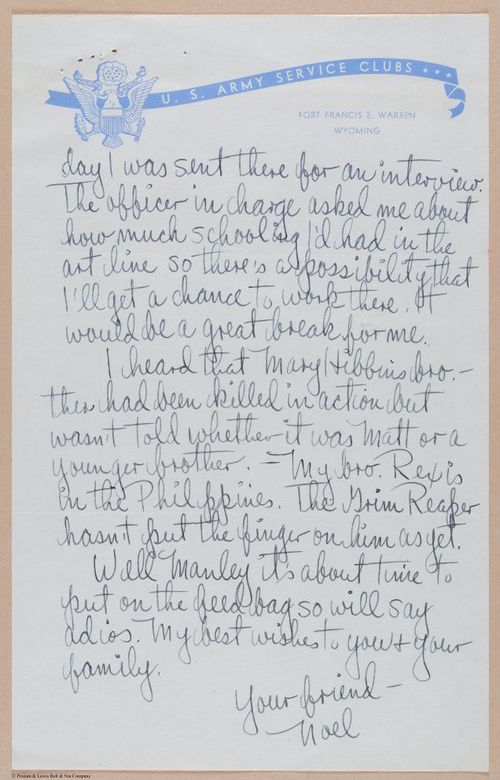 U. S. ARMY SERVICE CLUBS
FORT FRANCIS E. WARREN
WYOMING
day I was sent there for an interview.
The officer in charge asked me about
how much schooling I'd had in the
art line so there's a possibility that
I'll get a chance to work there. It
would be a great break for me.
I heard that Mary Hibbins bro.-
ther had been killed in action but
wasn't told whether it was Matt or a
younger brother. - My bro. Rex is
in the Philippines. The Grim Reaper
hasn't put the finger on him as yet.
Well Manley it's about time to
put on the feed bag so will say
adios. My best wishes to you & your
family.
Your friend -
Noel
© Pitman & Lewis Bolt & Nut Company